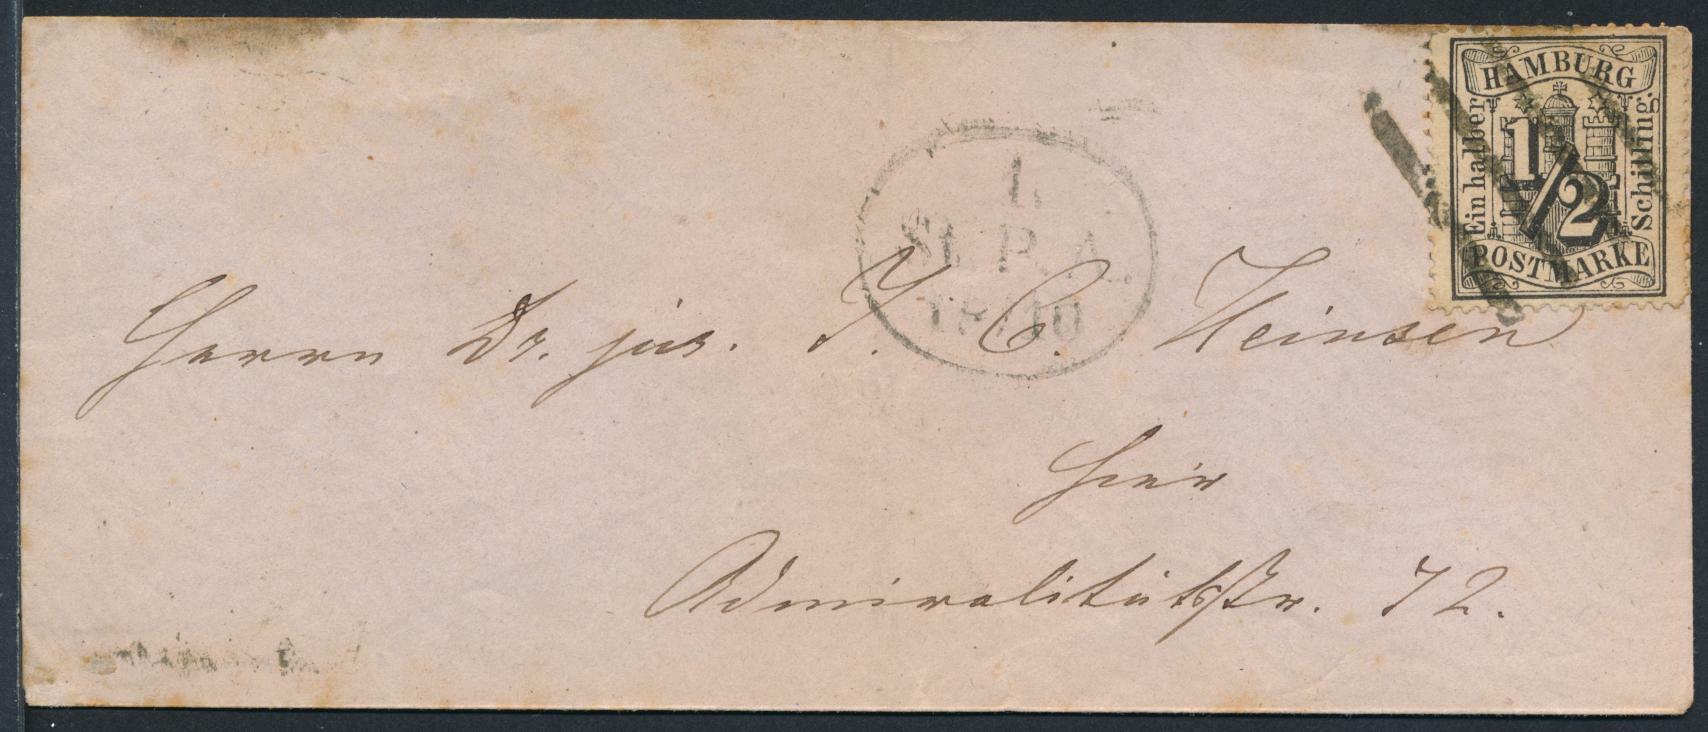 HAMBURG
Ein halber
1/2
Schilling
POSTMARKE
1.
St. P. A.
18/10
Herrn Dr. jur. J. C. Heinsen
hier
Admiralitätstr. 72.